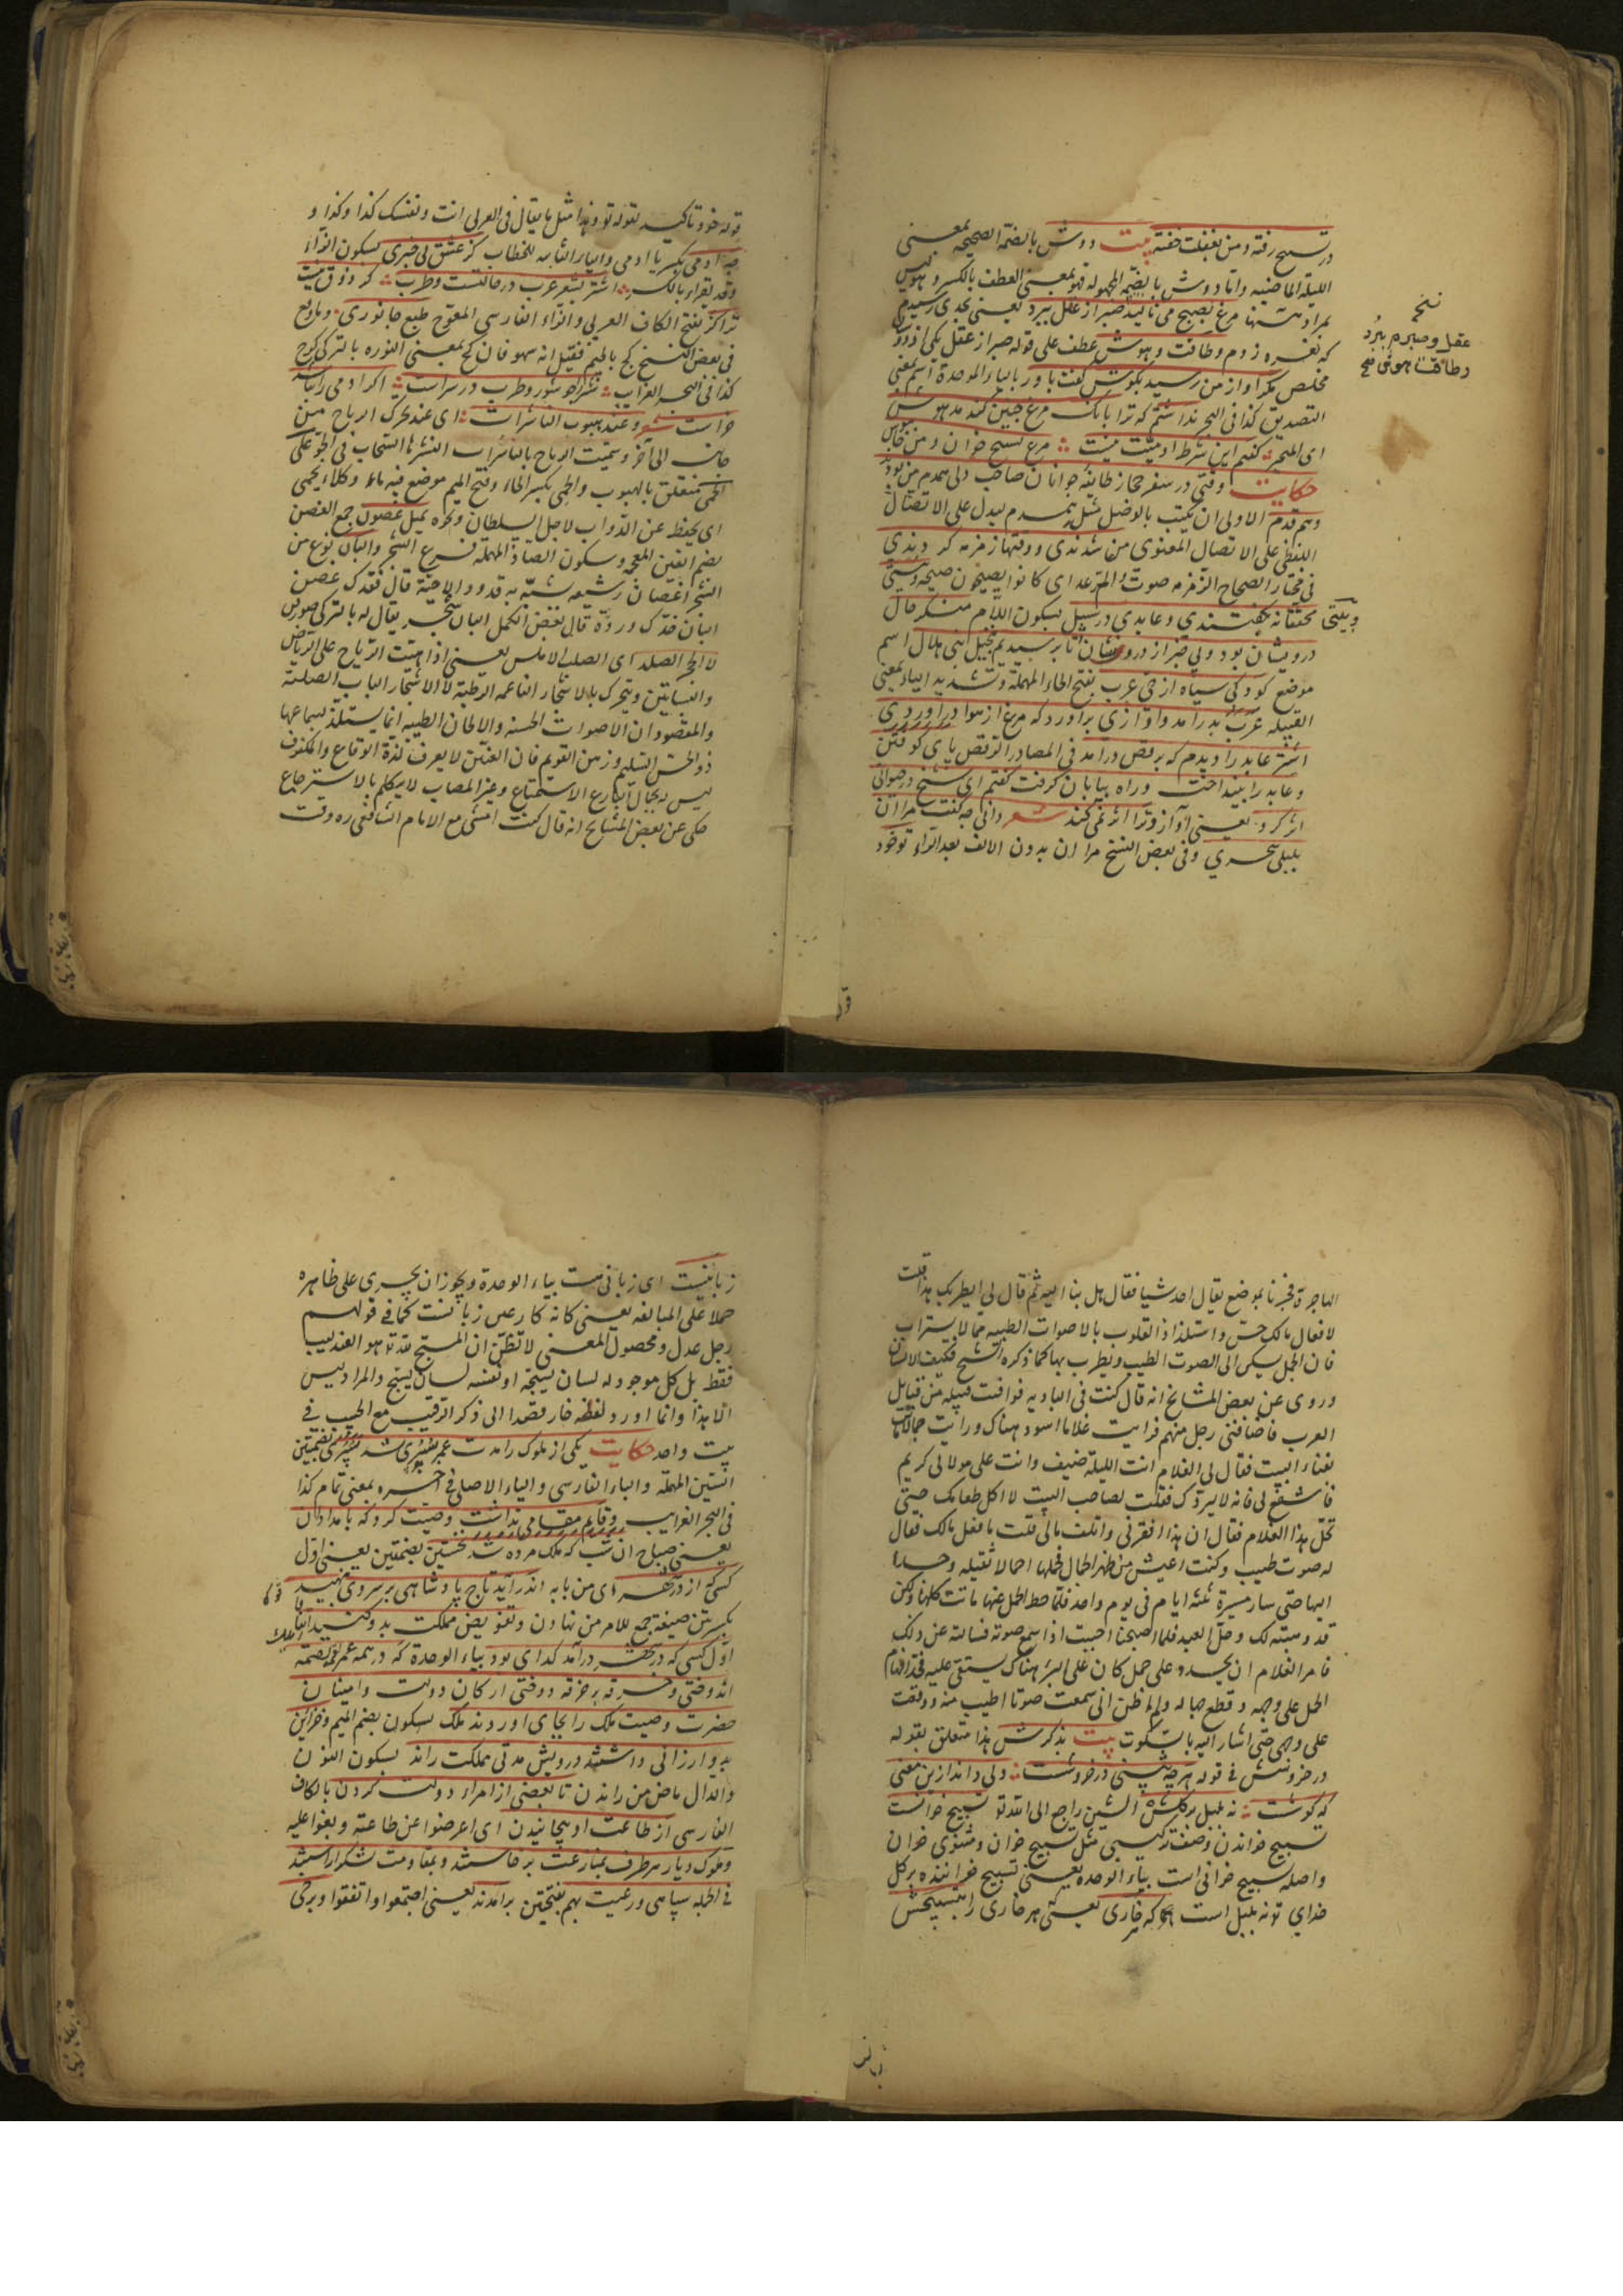 در تسبیح رفته و من بغفلت خفته بیت دوش بالضمة الصحیحه بمعنی
اللیلة الماضیه واما دوش بالضمة المجهوله فهو بمعنی العطف بالکسر و هو لیس
بمراد ههنا مرغ بصبح می نالید صبر از عقل ببرد یعنی
که بغمره زدم و طاقت و هوش عطف علی قوله صبر از عقل یکی از دوستان
مخلص مکر آواز من رسید بکوش کفت باور بالباء الموحدة اسم بمعنی
التصدیق کذا فی البحر نداشتم که ترا بانک مرغ چنین کند مدهوش
ای المتحیر کفتم این شرط آدمیت نیست مرغ تسبیح خوان و من خاموش
حکایت وقتی در سفر حجاز طایفه جوانان صاحب دلی همدم من بود
وهم قدم الاولی ان یکتب بالوصل مثل همدم لیدل علی الاتصال
اللفظی علی الاتصال المعنوی من شدندی و وقتها زمزمه کردندی
فی مختار الصحاح الزمزمه صوت الرعد ای کانوا یصیحون صیحه و بیتی
وبیتی محققانه بکفتندی و عابدی در سبیل بسکون اللام منکر حال
درویشان بود و بی خبر از درد ایشان تا برسیدیم بنخیل بنی هلال اسم
موضع کودکی سیاه از حی عرب بفتح الحاء المهملة و تشدید الیاء بمعنی
القبیله عرب بدر آمد و آوازی برآورد که مرغ از هوا درآوردی
اشتر عابد را دیدم که برقص درآمد فی المصادر الرقص پای کوفتن
و عابد را بینداخت و راه بیابان کرفت کفتم ای شیخ در حیوانی
اثر کرد یعنی آواز و ترا اثر نمی کند شعر دانی چه کفت مرا آن
بلبل سحری وفی بعض النسخ مرا ان بدون الالف بعد الراء تو خود
نسخه
عقل و صبرم ببرد
وطاقت و هوش صح
قوله خود تاکید لقوله تو و هذا مثل ما یقال فی العربی انت و نفسک کذا و کذا و
چه آدمی بکسر یا آدمی والیاء الثانیه للخطاب کز عشق بی خبری بسکون الزاء
وقد یقراء بالکسر اشتر بشعر عرب در حالتست و طرب کر ذوق نیست
ترا کژ بفتح الکاف العربی والزاء الفارسی المعوج طبع جانوری وما وقع
فی بعض النسخ کج بالجیم فقیل انه سهو فان کج بمعنی النوره بالترکی کرج
کذا فی البحر الغرایب شتر را چو شور و طرب در سراست اکر آدمی را نباشد
خراست شعر و عند هبوب الناشرات ای عند تحرک الریاح من
جانب الی آخر و سمیت الریاح بالناشرات لنشرها السحاب فی الجو علی
الحمی متعلق بالهبوب والحمی بکسر الحاء و فتح المیم موضع فیه ماء و کلاء یحمی
ای یحفظ عن الدواب لاجل السلطان و غیره تمیل غصون جمع الغصن
بضم الغین المعجمه و سکون الصاد المهملة فرع الشجر والبان نوع من
الشجر اغصان رشیقه شبه به قدود الاحبة قال فقدک غصن
البان خدک ورده قال بعض الکمل البان شجر یقال له بالترکی
لا الحجر الصلد ای الصلب الاملس یعنی اذا هبت الریاح علی الریاض
والبساتین و یتحرک بها الاشجار الناعمه الرطبة لا الاشجار الیابس الصلبة
والمقصود ان الاصوات الحسنه والالحان الطیبه انما یستلذ بسماعها
ذو الحس السلیم و زمن القویم فان العنین لا یعرف لذة الوقاع والمکفوف
لیس له بجمال البارع الاستمتاع و غیر المصاب لا یتکلم بالاسترجاع
حکی عن بعض المشایخ انه قال کنت امشی مع الامام الشافعی ره وقت
الهاجرة فجزنا بموضع یقال احد شیا فقال هل بنا الیه ثم قال لی ایطربک هذا قلت
لا فقال مالک حس و استلذاذ القلوب بالاصوات الطیبه مما لا یستراب
فان الجمل یسکن الی الصوت الطیب و یطرب بها کما ذکره الشیخ فکیف الانسان
وروی عن بعض المشایخ انه قال کنت فی البادیه فوافیت قبیله من قبایل
العرب فاضافنی رجل منهم فرایت غلاما اسود هناک و رایت جمالا ماتت
بفناء البیت فقال لی الغلام انت اللیلة ضیف وانت علی مولای کریم
فاشفع لی فانه لا یردک فقلت لصاحب البیت لا آکل طعامک حتی
تحل هذا الغلام فقال ان هذا افقرنی و اتلف مالی قلت ما فعل مالک فقال
له صوت طیب و کنت اعیش من ظهر الجمال فحملها احمالا ثقیله و حدا
الیها حتی سار مسیرة ثلثه ایام فی یوم واحد فلما حط الحمل عنها ماتت کلها ولکن
قد وهبته لک و حل العبد فلما اصبحنا احببت ان اسمع صوته فسالته عن ذلک
فامر الغلام ان یحدو علی جمل کان علی البئر هناک یستقی علیه فحدا فهام
الجمل علی وجهه و قطع حباله ولم اظن انی سمعت صوتا اطیب منه و وقعت
علی وجهی حتی اشار الیه بالسکوت بیت بذکرش هذا متعلق بقوله
در خروش فی قوله هرچه بینی در خروشست ولی داند ازین معنی
که کوشست نه بلبل بر کلش الشین راجع الی الله تو تسبیح خوانست
تسبیح خواندن وصفت ترکیبی مثل تسبیح خوان و مثنوی خوان
واصله تسبیح خوانی است بیاء الوحده یعنی تسبیح خواننده بر کل
خدای تو نه بلبل است که خاری یعنی هر خاری را بتسبیحش
زبانیست ای زبانی است بیاء الوحدة و یجوز ان یجری علی ظاهره
حملا علی المبالغه یعنی کانه کان عین زبانست کما فی قولهم
رجل عدل و محصول المعنی لا تظنن ان المسبح لله تع هو العندلیب
فقط بل کل موجود له لسان یسبحه او نفسه لسان یسبح والمراد لیس
الا هذا وانما اورد لفظه خار قصدا الی ذکر الرقیب مع الحبیب فی
بیت واحد حکایت یکی از ملوک را مدت عمر سپری شد سپری بضمتین
السین المهمله والباء الفارسی والیاء الاصلی فی آخره بمعنی تمام کذا
فی البحر الغرایب وقایم مقامی نداشت وصیت کرد که بامدادان
یعنی صباح آن شب که ملک مرده شد نخستین بضمتین یعنی اول
کسی که از در شهر ای من بابه اندر آید تاج پادشاهی بر سر وی نهید
بکسرتین صیغه جمع للامر من نهادن و تفویض مملکت بدو کنید اتفاقا
اول کسی که در شهر درآمد کدای بود بیاء الوحدة که در همه عمر لقمه لقمه
اندوختی و خرقه بر خرقه دوختی ارکان دولت و اعیان
حضرت وصیت ملک را بجای آوردند ملک بسکون بضم المیم و خزاین
بدو ارزانی داشتند درویش مدتی مملکت راند بسکون النون
والدال ماض من راندن تا بعضی از امراء دولت کردن بالکاف
الفارسی از طاعت او بپیچانیدن ای اعرضوا عن طاعته و بغوا علیه
و ملوک دیار هر طرف بمنازعت برخاستند و بمقاومت لشکر آراستند
فی الجمله سپاهی و رعیت بهم بفتحتین برآمدند یعنی اجتمعوا و اتفقوا و برخی